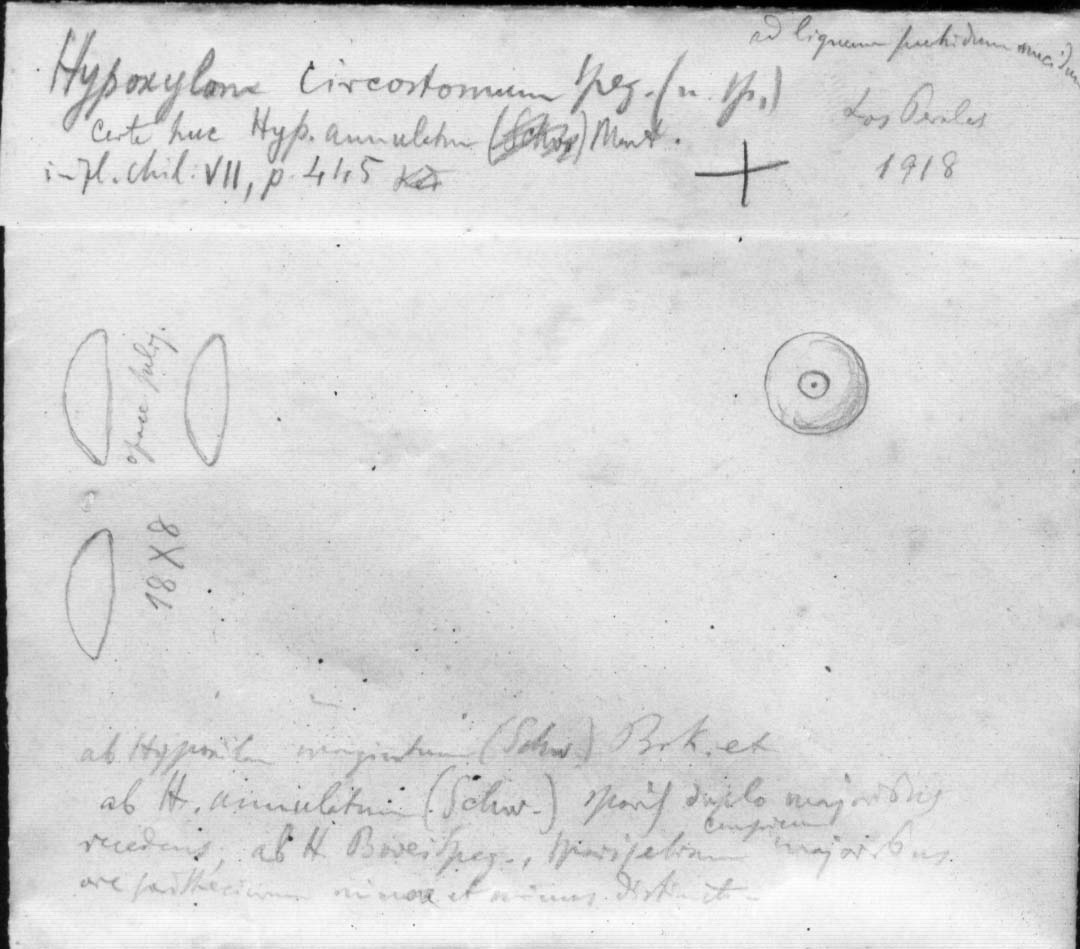 ad lignum putridum mucidum
Hypoxylon circostomum Speg. (n. sp.)
Los Perales
certe huc Hyp. annulatum (Schw.) Mont.
in Fl. chil. VII, p. 445
1918
sporae fulig.
18 X 8
ab Hypoxilon marginatum (Schw.) Brk. et
ab H. annulatum (Schw.) sporis duplo majoribus
recedens, ab H. Bovei Speg., sporis etiam majoribus
ore et minus distincto